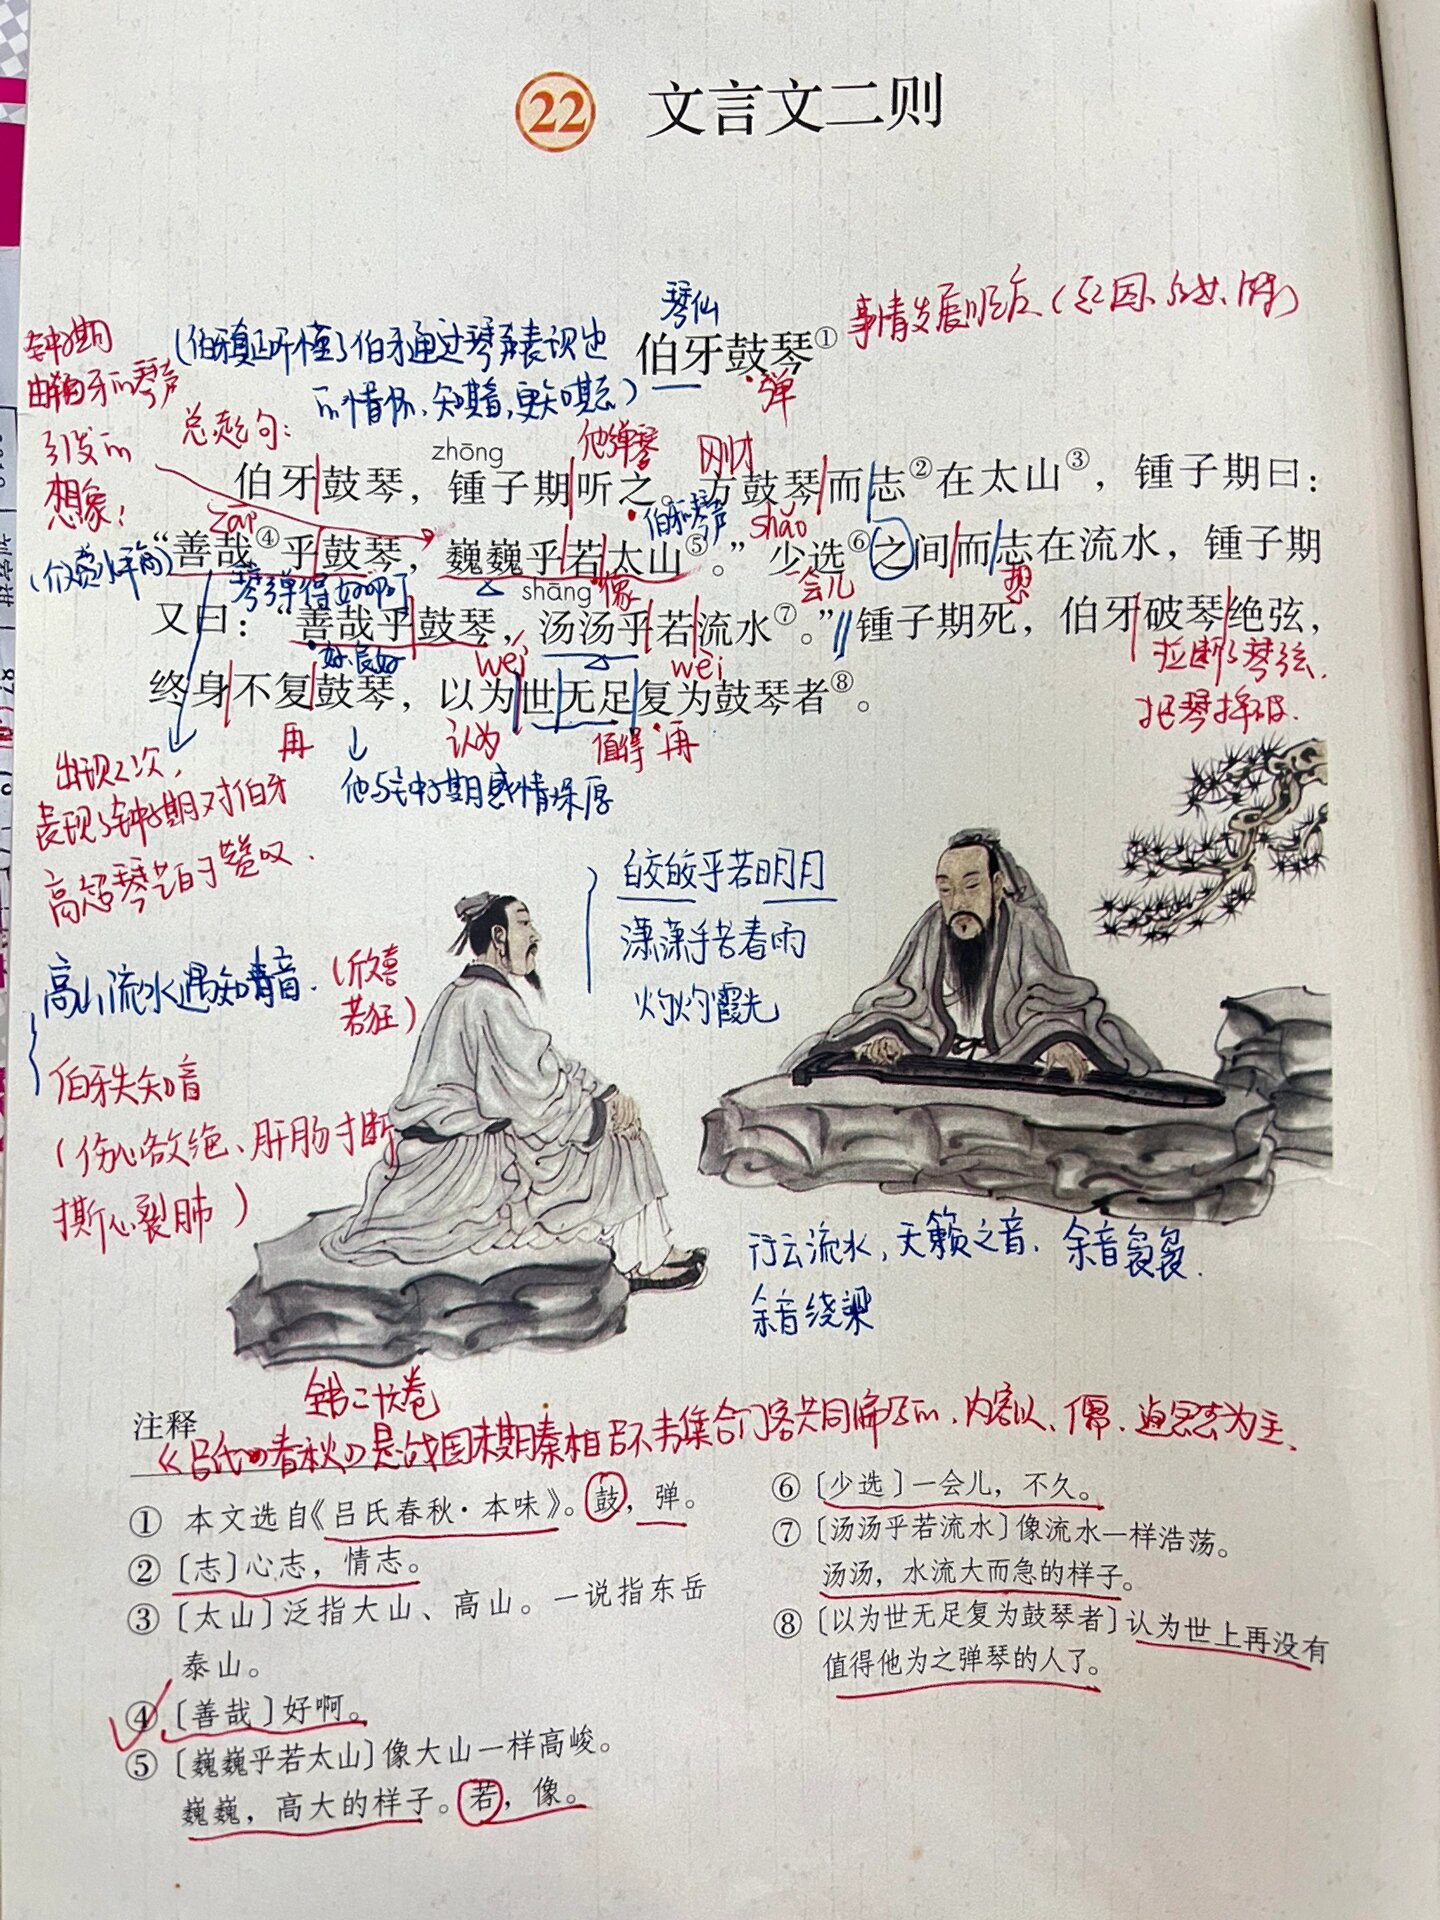 22 文言文二则
琴仙
伯牙鼓琴①
弹
事情发展顺序(起因、经过、结果)
钟子期
由伯牙的琴声
引发的
想象!
(伯牙真正听懂了伯牙通过琴声表识出
的情怀、知其音,更知其志)
总起句:
zhōng
他弹琴
刚才
伯牙鼓琴,锺子期听之。方鼓琴而志②在太山③,锺子期曰:
zāi
伯牙琴声
shǎo
“善哉④乎鼓琴,巍巍乎若太山⑤。”少选⑥之间而志在流水,锺子期
琴弹得好啊
shāng
像
一会儿
想
又曰:“善哉乎鼓琴,汤汤乎若流水⑦。”锺子期死,伯牙破琴绝弦,
好、良好
wéi
wèi
拉断了琴弦,
把琴摔破.
终身不复鼓琴,以为世无足复为鼓琴者⑧。
再
认为
值得
再
出现2次,
表现了钟子期对伯牙
高超琴艺的赞叹.
他与钟子期感情深厚
皎皎乎若明月
潇潇乎若春雨
灼灼霞光
高山流水遇知音.
(欣喜
若狂)
伯牙失知音
(伤心欲绝、肝肠寸断
撕心裂肺)
行云流水,天籁之音.余音袅袅.
余音绕梁
全书二十六卷
注释
《吕氏春秋》是战国末期秦相吕不韦集合门客共同编写的,内容以、儒、道思想为主、
① 本文选自《吕氏春秋·本味》。鼓,弹。
②〔志〕心志,情志。
③〔太山〕泛指大山、高山。一说指东岳
泰山。
④〔善哉〕好啊。
⑤〔巍巍乎若太山〕像大山一样高峻。
巍巍,高大的样子。若,像。
⑥〔少选〕一会儿,不久。
⑦〔汤汤乎若流水〕像流水一样浩荡。
汤汤,水流大而急的样子。
⑧〔以为世无足复为鼓琴者〕认为世上再没有
值得他为之弹琴的人了。